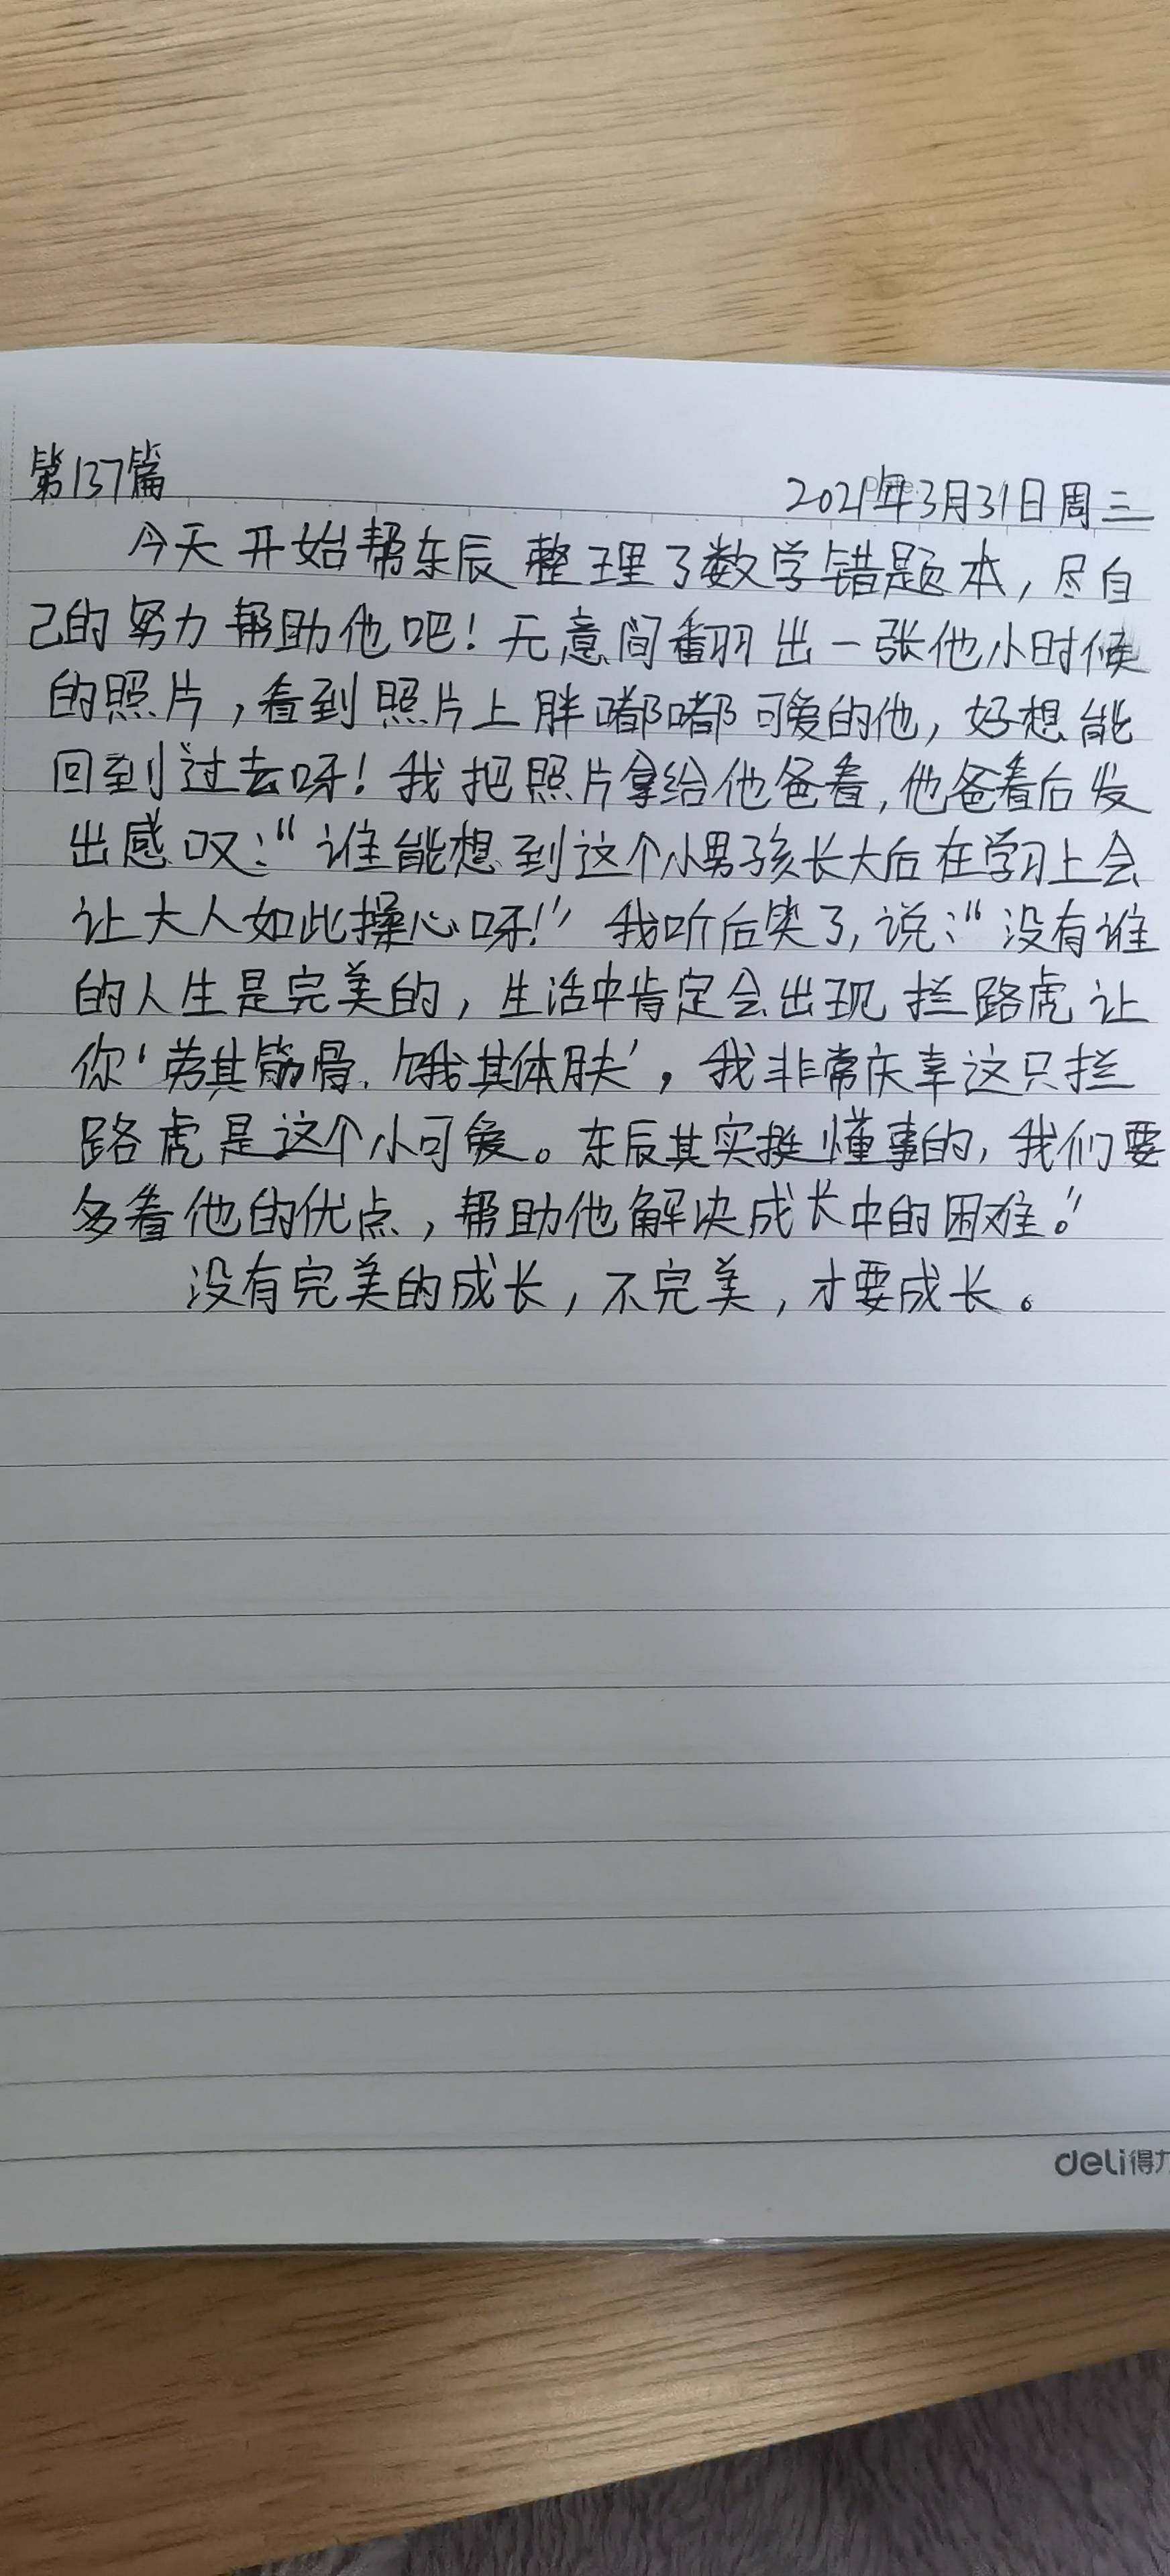 第137篇
2021年3月31日周三
今天开始帮东辰整理了数学错题本，尽自
己的努力帮助他吧！无意间翻出一张他小时候
的照片，看到照片上胖嘟嘟可爱的他，好想能
回到过去呀！我把照片拿给他爸看，他爸看后发
出感叹：“谁能想到这个小男孩长大后在学习上会
让大人如此操心呀！”我听后笑了，说：“没有谁
的人生是完美的，生活中肯定会出现拦路虎让
你‘劳其筋骨，饿其体肤’，我非常庆幸这只拦
路虎是这个小可爱。东辰其实挺懂事的，我们要
多看他的优点，帮助他解决成长中的困难。”
没有完美的成长，不完美，才要成长。
deli得力